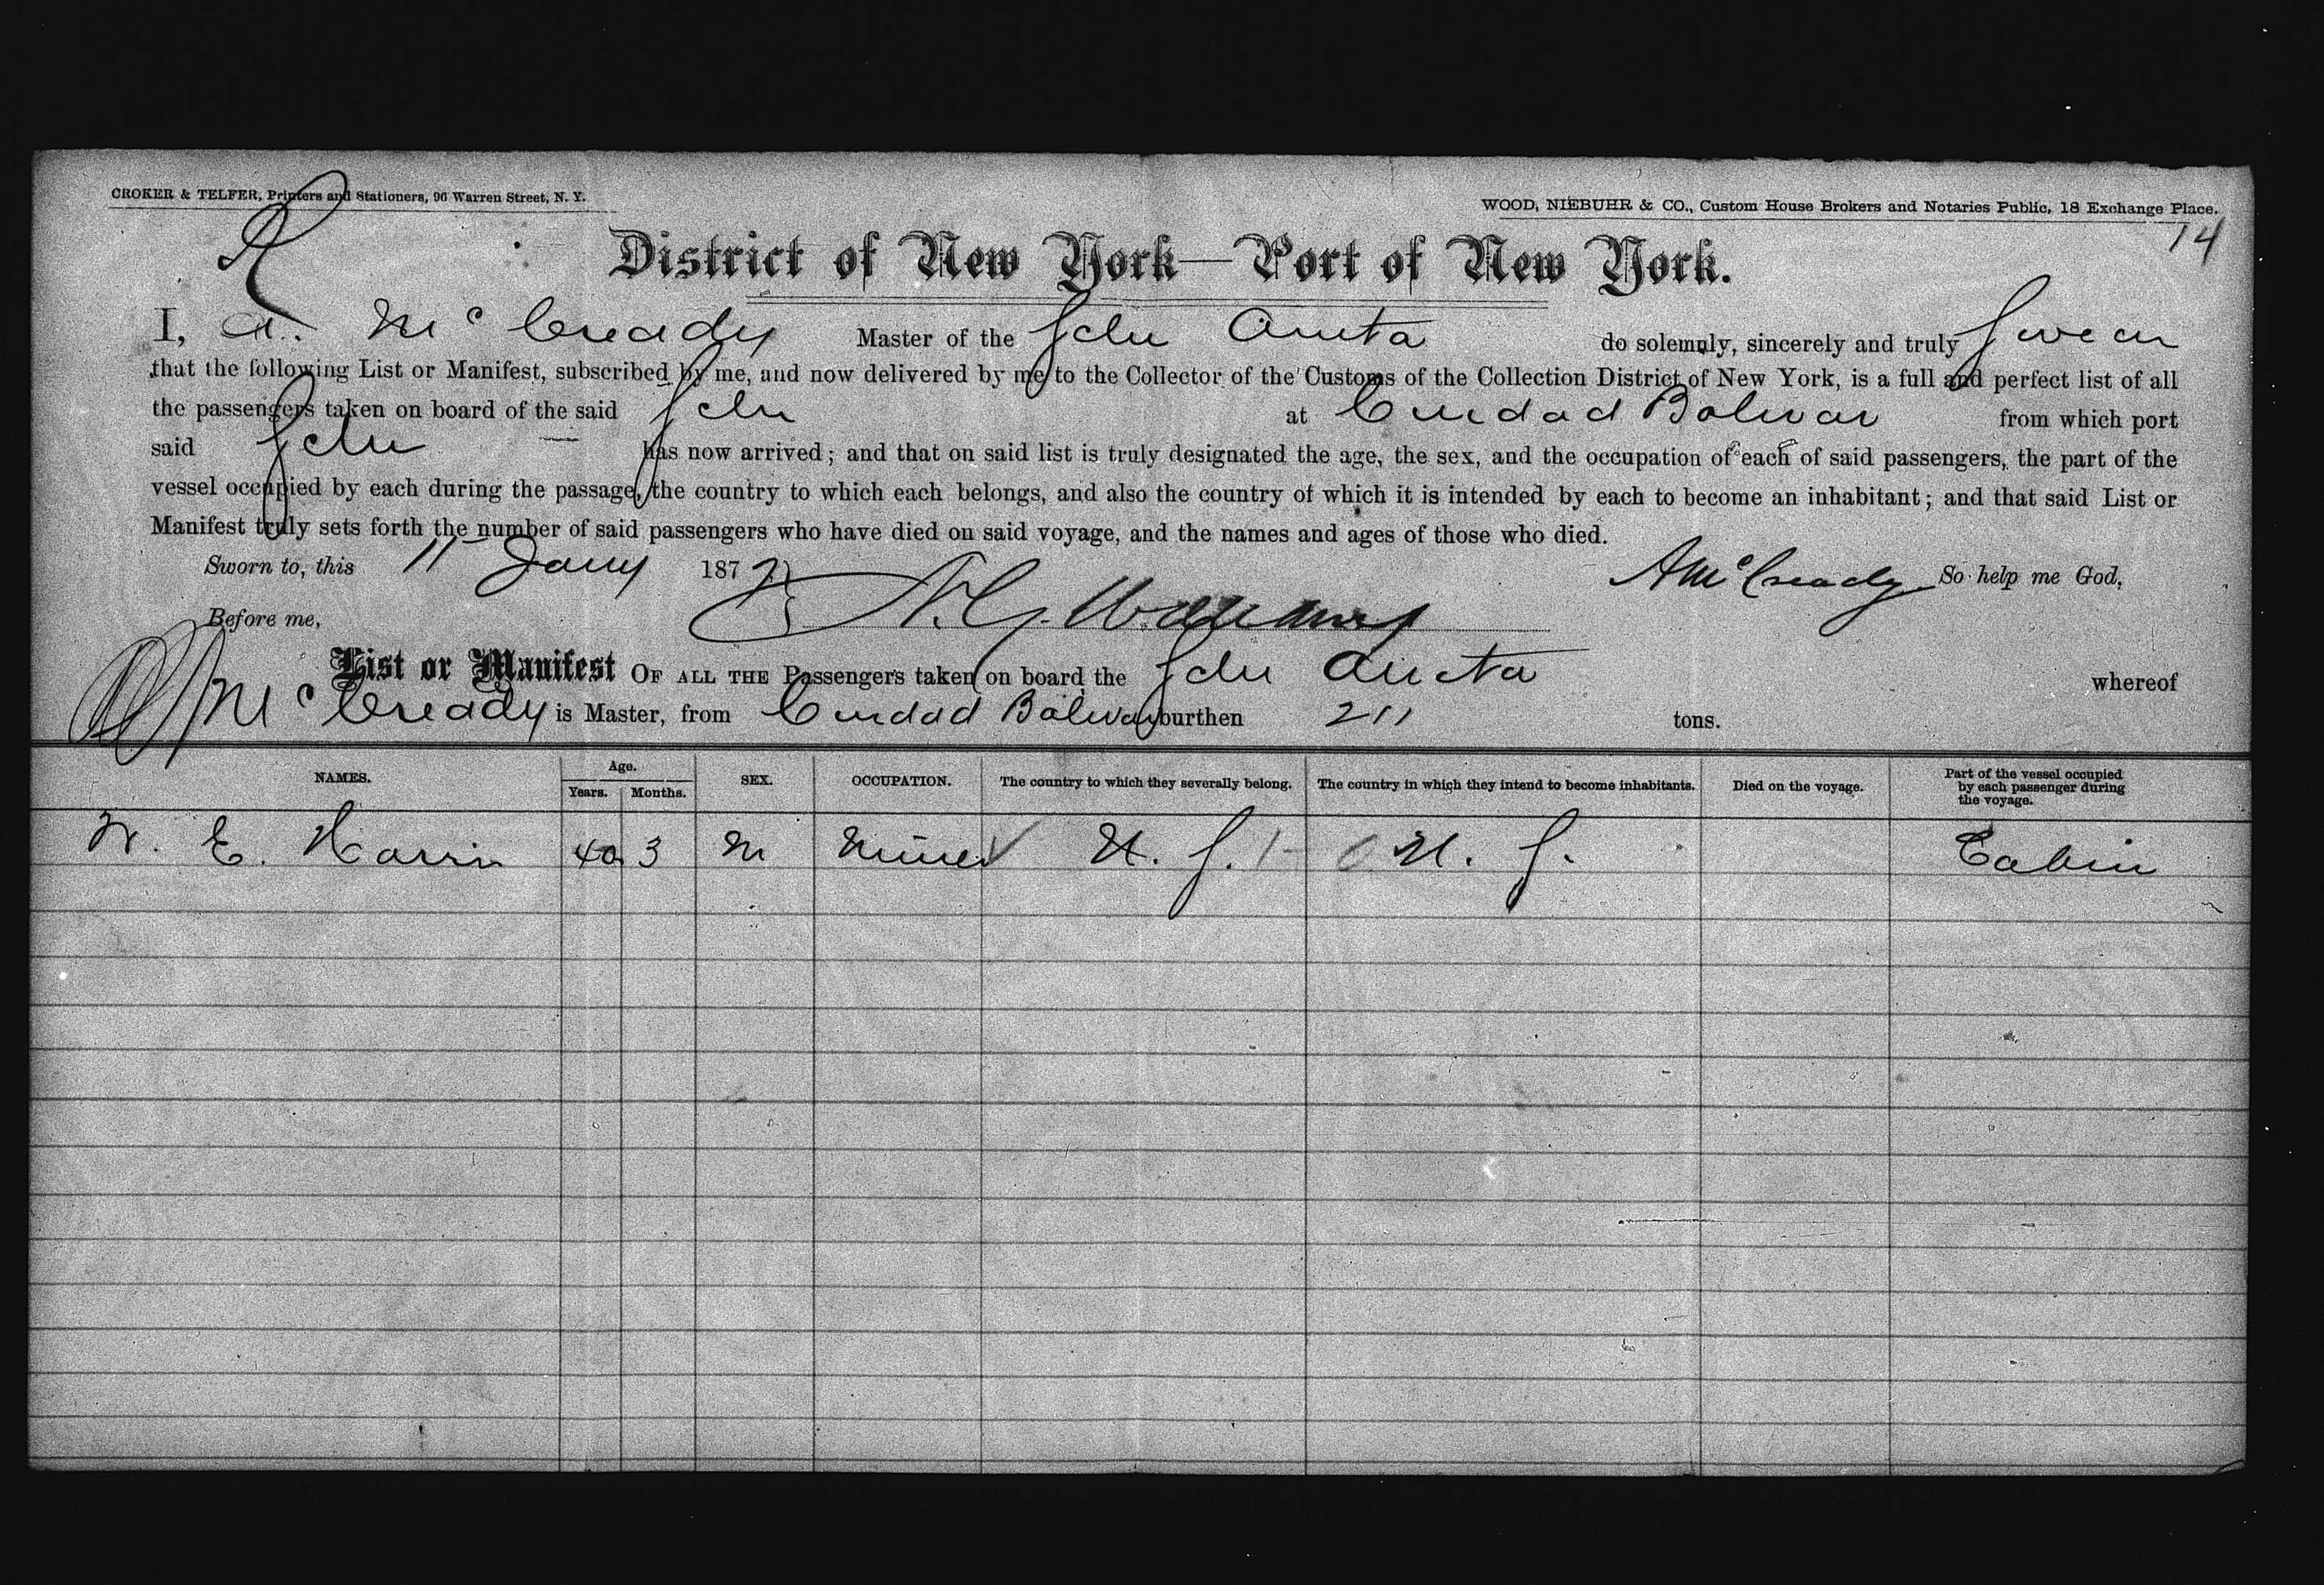 CROKER & TELFER, Printers and Stationers, 96 Warren Street, N. Y.
WOOD, NIEBUHR & CO., Custom House Brokers and Notaries Public, 18 Exchange Place.
14
District of New York—Port of New York.
I, A. McCready Master of the Schr Anita do solemnly, sincerely and truly Swear
that the following List or Manifest, subscribed by me, and now delivered by me to the Collector of the Customs of the Collection District of New York, is a full and perfect list of all
the passengers taken on board of the said Schr at Ciudad Bolivar from which port
said Schr has now arrived; and that on said list is truly designated the age, the sex, and the occupation of each of said passengers, the part of the
vessel occupied by each during the passage, the country to which each belongs, and also the country of which it is intended by each to become an inhabitant; and that said List or
Manifest truly sets forth the number of said passengers who have died on said voyage, and the names and ages of those who died.
Sworn to, this 11 Jany 187 AMcCready So help me God,
Before me,
List or Manifest OF ALL THE Passengers taken on board the Schr Anita whereof
McCready is Master, from Ciudad Bolivar burthen 211 tons.
NAMES. Age. Years. Months. SEX. OCCUPATION. The country to which they severally belong. The country in which they intend to become inhabitants. Died on the voyage. Part of the vessel occupied by each passenger during the voyage.
E. Harris 40 3 M Miner U. S. U. S. Cabin